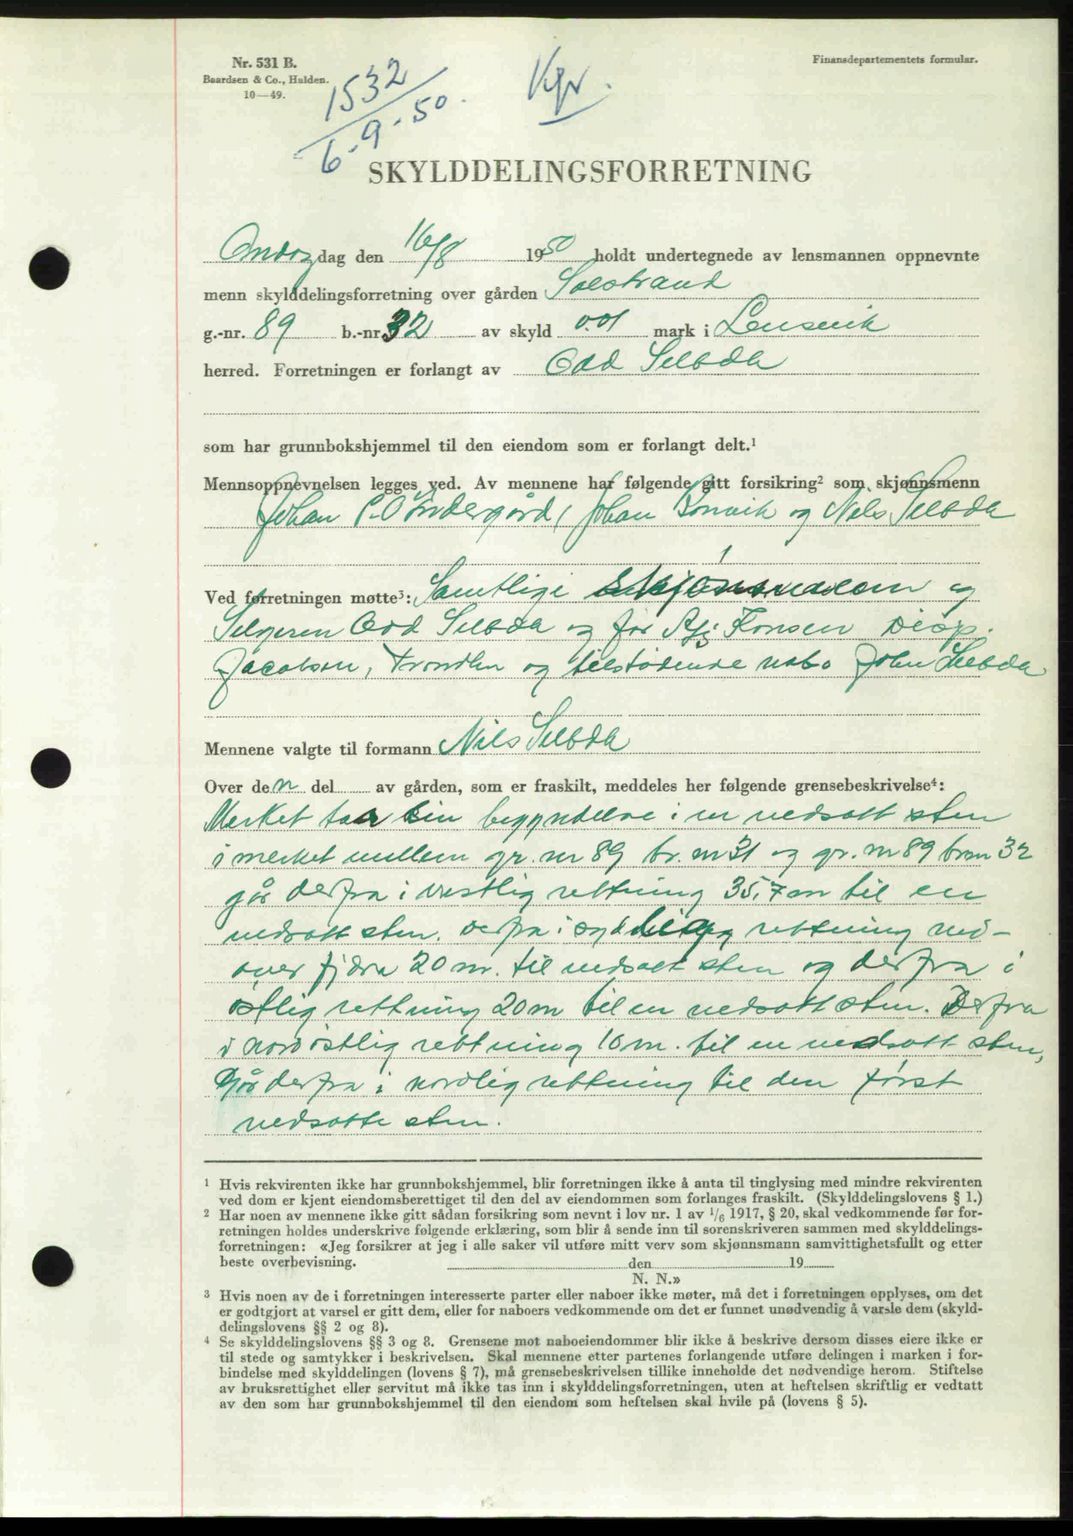 Nr. 531 B.
Baardsen & Co., Halden.
10—49.
Finansdepartementets formular.
1532
6-9-50.
SKYLDDELINGSFORRETNING
Onsdag den 16/8 1950 holdt undertegnede av lensmannen oppnevnte
menn skylddelingsforretning over gården Solstrand
g.-nr. 89 b.-nr. 32 av skyld 0.01 mark i Lensvik
herred. Forretningen er forlangt av Odd Selbda
som har grunnbokshjemmel til den eiendom som er forlangt delt.¹
Mennsoppnevnelsen legges ved. Av mennene har følgende gitt forsikring² som skjønnsmenn
Johan P. Øndergård, Johan Bonvik og Nils Selbda
Ved forretningen møtte³: Samtlige og
Selgeren Odd Selbda og for Disp.
Jacobsen, Trondhm og tilstødende nabo John Selbda
Mennene valgte til formann Nils Selbda
Over den del av gården, som er fraskilt, meddeles her følgende grensebeskrivelse⁴:
Merket tar sin begyndelse i en nedsatt sten
i merket mellem gr. nr 89 br. nr 31 og gr. nr 89 br nr 32
går derfra i vestlig rettning 35,7 m til en
nedsatt sten. Derfra i sydlig rettning ned-
over fjæra 20 m. til nedsatt sten og derfra i
østlig rettning 20 m til en nedsatt sten. Derfra
i nordøstlig rettning 16 m. til en nedsatt sten,
går derfra i nordlig rettning til den først
nedsatte sten.
¹ Hvis rekvirenten ikke har grunnbokshjemmel, blir forretningen ikke å anta til tinglysing med mindre rekvirenten
ved dom er kjent eiendomsberettiget til den del av eiendommen som forlanges fraskilt. (Skylddelingslovens § 1.)
² Har noen av mennene ikke gitt sådan forsikring som nevnt i lov nr. 1 av ¹/₆ 1917, § 20, skal vedkommende før for-
retningen holdes underskrive følgende erklæring, som blir å sende inn til sorenskriveren sammen med skylddelings-
forretningen: «Jeg forsikrer at jeg i alle saker vil utføre mitt verv som skjønnsmann samvittighetsfullt og etter
beste overbevisning. den 19
N. N.»
³ Hvis noen av de i forretningen interesserte parter eller naboer ikke møter, må det i forretningen opplyses, om det
er godtgjort at varsel er gitt dem, eller for naboers vedkommende om det er funnet unødvendig å varsle dem (skyld-
delingslovens §§ 2 og 8).
⁴ Se skylddelingslovens §§ 3 og 8. Grensene mot naboeiendommer blir ikke å beskrive dersom disses eiere ikke er
til stede og samtykker i beskrivelsen. Skal mennene etter partenes forlangende utføre delingen i marken i for-
bindelse med skylddelingen (lovens § 7), må grensebeskrivelsen tillike inneholde det nødvendige herom. Stiftelse
av bruksrettighet eller servitut må ikke tas inn i skylddelingsforretningen, uten at heftelsen skriftlig er vedtatt
av den som har grunnbokshjemmel til den eiendom som heftelsen skal hvile på (lovens § 5).